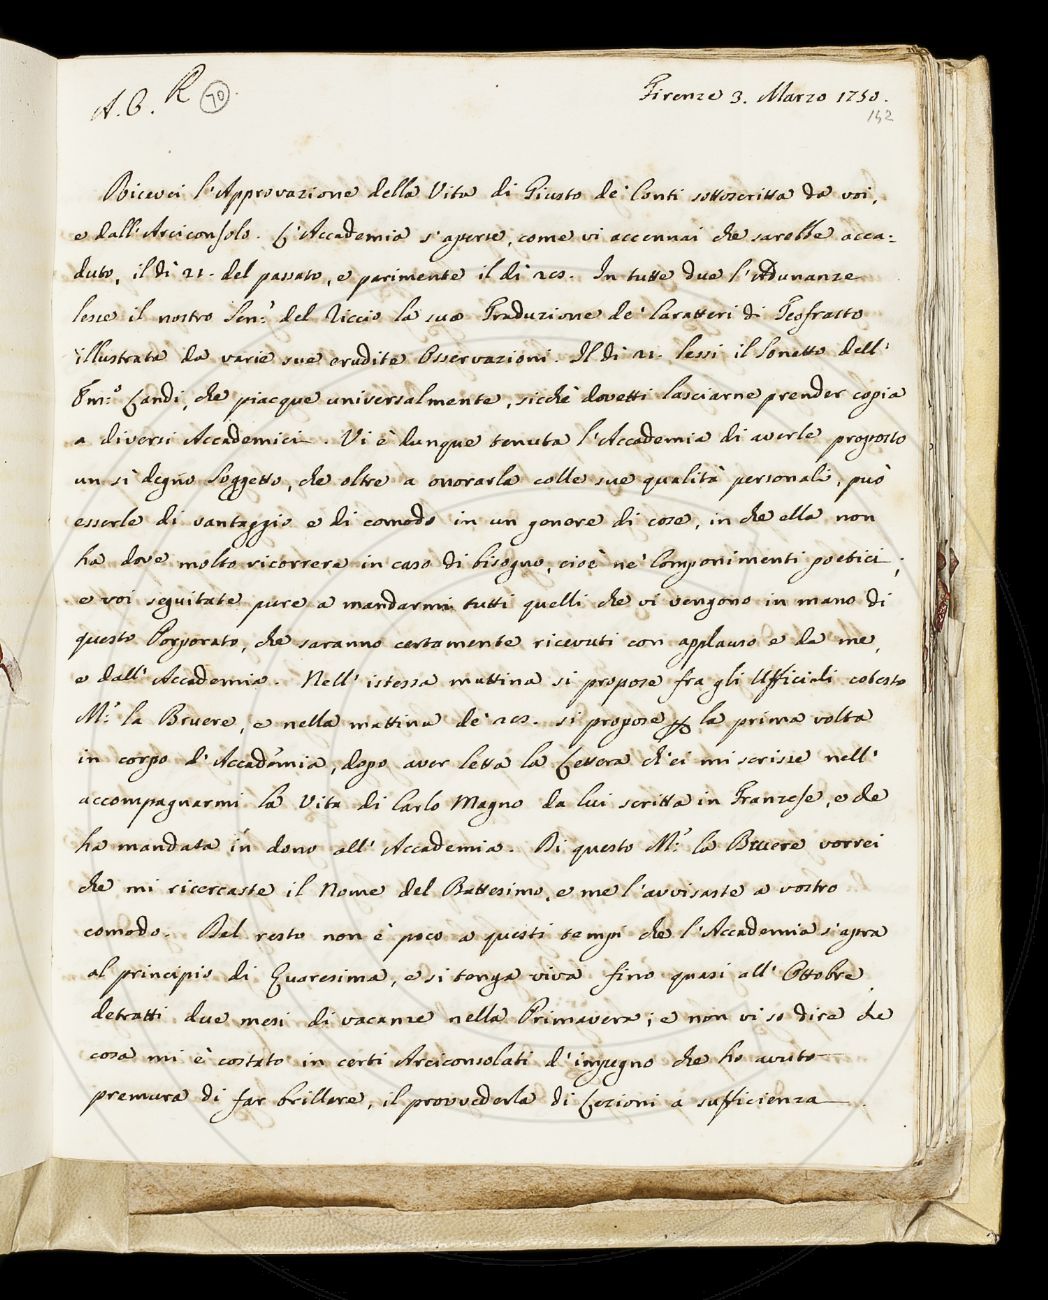 A. C. R 70
Firenze 3. Marzo 1750.
142
Ricevei l'Approvazione della Vita di Giusto de' Conti sottoscritta da voi,
e dall'Arciconsolo. L'Accademia s'aperse, come vi accennai che sarebbe acca=
duto, il dì 21. del passato, e parimente il dì 28. In tutte due l'Adunanze
lesse il nostro Sen.r del Riccio la sua Traduzione de' Caratteri di Teofrasto
illustrata da varie sue erudite Osservazioni. Il dì 21. lessi il Sonetto dell'
Em.o Landi, che piacque universalmente, sicchè dovetti lasciarne prender copia
a diversi Accademici. Vi è dunque tenuta l'Accademia di averle proposto
un sì degno Soggetto, che oltre a onorarla colle sue qualità personali, può
esserle di vantaggio e di comodo in un genere di cose, in che ella non
ha dove molto ricorrere in caso di bisogno, cioè ne' Componimenti poetici;
e voi seguitate pure a mandarmi tutti quelli che vi vengono in mano di
questo Porporato, che saranno certamente ricevuti con applauso e da me,
e dall'Accademia. Nell'istessa mattina si propose fra gli Ufficiali cotesto
M.r la Bruere, e nella mattina de' 28. si propose per la prima volta
in corpo d'Accademia, dopo aver letta la Lettera ch'ei mi scrisse nell'
accompagnarmi la Vita di Carlo Magno da lui scritta in Franzese, e che
ha mandata in dono all'Accademia. Di questo M.r la Bruere vorrei
che mi ricercaste il Nome del Battesimo, e me l'avvisaste a vostro
comodo. Del resto non è poco a questi tempi che l'Accademia s'apra
al principio di Quaresima, e si tenga viva fino quasi all'Ottobre,
detratti due mesi di vacanze nella Primavera; e non vi so dire che
cosa mi è costato in certi Arciconsolati d'impegno che ho avuto
premura di far brillare, il provvederla di Lezioni a sufficienza.